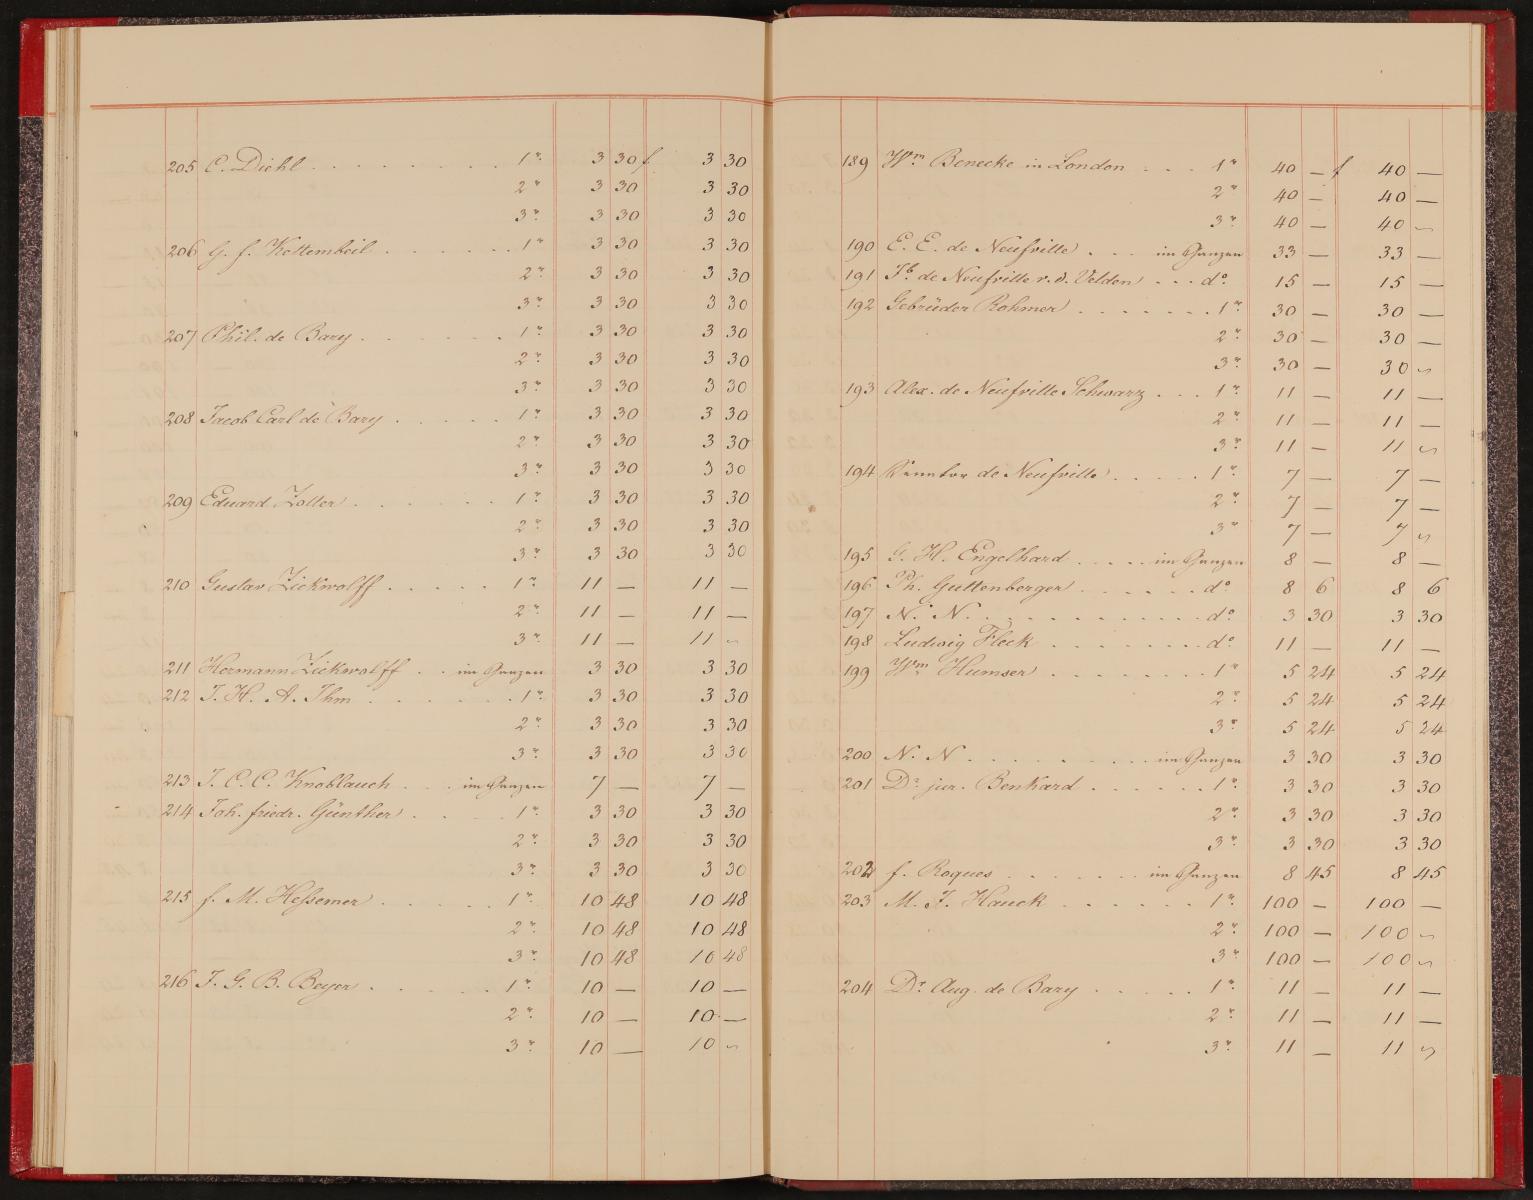 205 C. Diehl . . . . . . . . 1r. 3 30 f 3 30
2r 3 30 3 30
3r. 3 30 3 30
206 G. f. Kottembeil . . . . . 1r 3 30 3 30
2r 3 30 3 30
3r. 3 30 3 30
207 Phil. de Bary . . . . . . 1r. 3 30 3 30
2r. 3 30 3 30
3r. 3 30 3 30
208 Jacob Carl de Bary . . . . . 1r. 3 30 3 30
2r. 3 30 3 30
3r. 3 30 3 30
209 Eduard Zoller . . . . . . 1r. 3 30 3 30
2r. 3 30 3 30
3r. 3 30 3 30
210 Gustav Zickwolff . . . . . 1r. 11 — 11 —
2r. 11 — 11 —
3r. 11 — 11 ~
211 Hermann Zickwolff . . im Ganzen 3 30 3 30
212 J. H. A. Ihm . . . . . . 1r. 3 30 3 30
2r. 3 30 3 30
3r. 3 30 3 30
213 J. C. C. Knoblauch . . . im Ganzen 7 — 7 —
214 Joh. friedr. Günther . . . . 1r. 3 30 3 30
2r. 3 30 3 30
3r. 3 30 3 30
215 f. M. Heßemer . . . . . 1r. 10 48 10 48
2r. 10 48 10 48
3r. 10 48 10 48
216 J. G. B. Beyer . . . . . 1r. 10 — 10 —
2r. 10 — 10 —
3r. 10 — 10 ~
189 Wm. Benecke in London . . . 1r 40 — f 40 —
2r 40 — 40 —
3r. 40 — 40 ~
190 E. E. de Neufville . . . im Ganzen 33 — 33 —
191 Jb. de Neufville v. d. Velden . . . do. 15 — 15 —
192 Gebrüder Rohmer . . . . . . . 1r. 30 — 30 —
2r. 30 — 30 —
3r. 30 — 30 ~
193 Alex. de Neufville Schwarz . . . 1r. 11 — 11 —
2r. 11 — 11 —
3r. 11 — 11 ~
194 Senator de Neufville . . . . . 1r. 7 — 7 —
2r. 7 — 7 —
3r 7 — 7 ~
195 G. H. Engelhard . . . . . im Ganzen 8 — 8 —
196 Ph. Guttenberger . . . . . . do. 8 6 8 6
197 N. N. . . . . . . . . . do 3 30 3 30
198 Ludwig Fleck . . . . . . . do. 11 — 11 —
199 Wm. Humser . . . . . . . . 1r 5 24 5 24
2r. 5 24 5 24
3r. 5 24 5 24
200 N. N . . . . . . . . im Ganzen 3 30 3 30
201 Dr jur. Benkard . . . . . . 1r. 3 30 3 30
2r. 3 30 3 30
3r. 3 30 3 30
202 f. Roques . . . . . . . im Ganzen 8 45 8 45
203 M. J. Hauck . . . . . . 1r. 100 — 100 —
2r. 100 — 100 ~
3r 100 — 100 ~
204 Dr Aug. de Bary . . . . . 1r. 11 — 11 —
2r. 11 — 11 —
3r. 11 — 11 ~